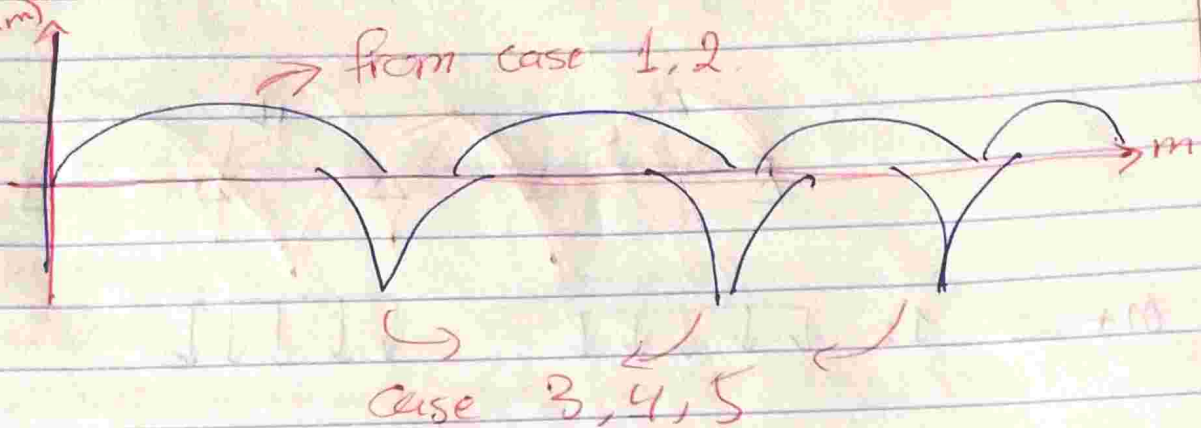 m)
from case 1,2.
m
case 3,4,5